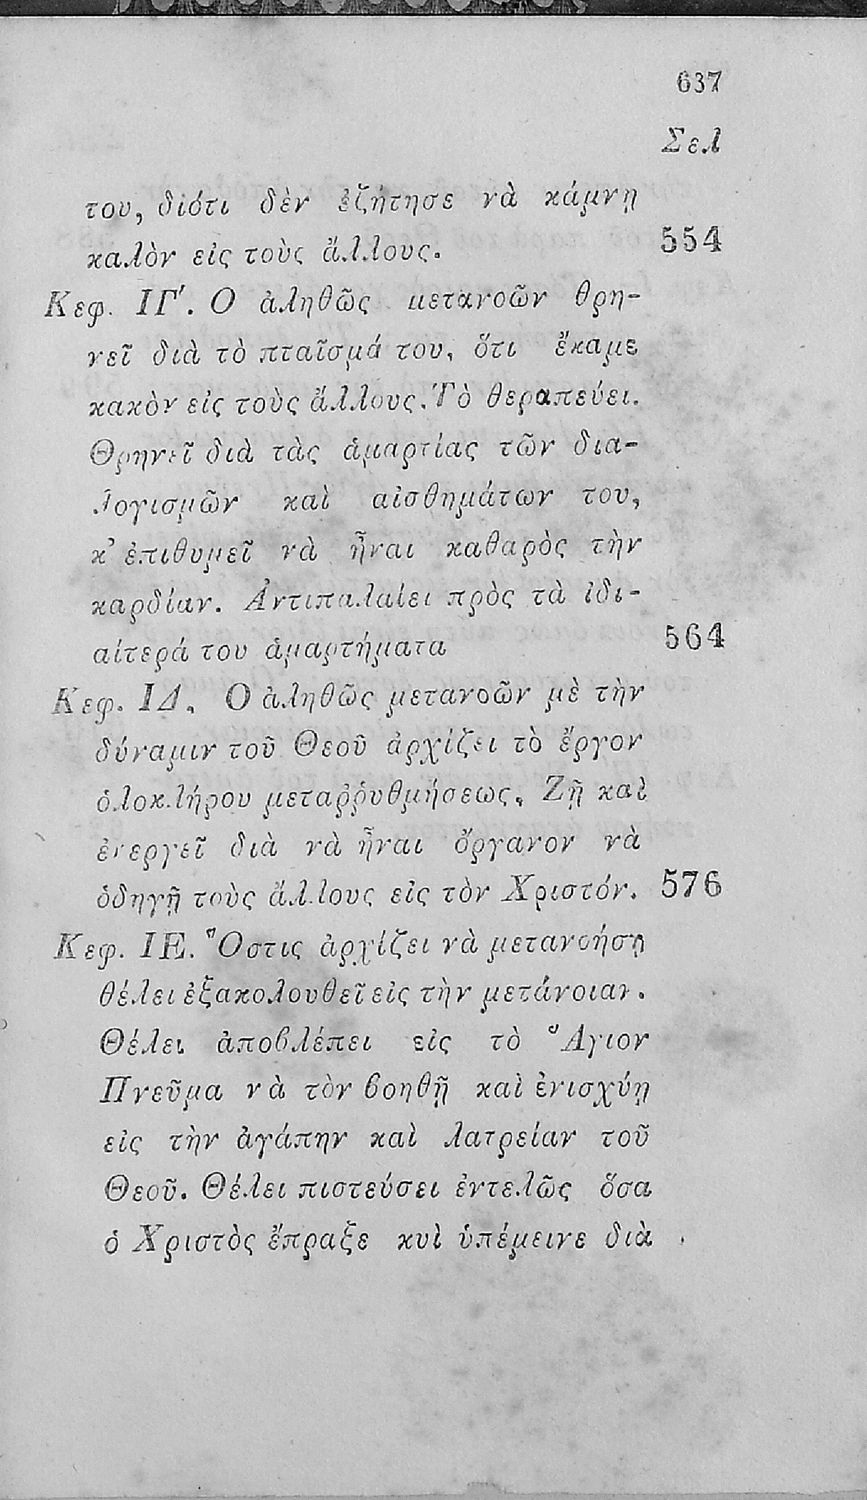 637
Σελ
του, διότι δὲν ἐζήτησε νὰ κάμνῃ
καλὸν εἰς τοὺς ἄλλους. 554
Κεφ. ΙΓʹ. Ο ἀληθῶς μετανοῶν θρη-
νεῖ διὰ τὸ πταῖσμά του, ὅτι ἔκαμε
κακὸν εἰς τοὺς ἄλλους. Τὸ θεραπεύει.
Θρηνεῖ διὰ τὰς ἁμαρτίας τῶν δια-
λογισμῶν καὶ αἰσθημάτων του,
κ’ ἐπιθυμεῖ νὰ ἦναι καθαρὸς τὴν
καρδίαν. Ἀντιπαλαίει πρὸς τὰ ἰδι-
αίτερά του ἁμαρτήματα 564
Κεφ. ΙΔ. Ο ἀληθῶς μετανοῶν μὲ τὴν
δύναμιν τοῦ Θεοῦ ἀρχίζει τὸ ἔργον
ὁλοκλήρου μεταῤῥυθμήσεως. Ζῇ καὶ
ἐνεργεῖ διὰ νὰ ἦναι ὄργανον νὰ
ὁδηγῇ τοὺς ἄλλους εἰς τὸν Χριστόν. 576
Κεφ. ΙΕ. Ὅστις ἀρχίζει νὰ μετανοήσῃ
θέλει ἐξακολουθεῖ εἰς τὴν μετάνοιαν.
Θέλει ἀποβλέπει εἰς τὸ Ἅγιον
Πνεῦμα νὰ τὸν βοηθῇ καὶ ἐνισχύῃ
εἰς τὴν ἀγάπην καὶ λατρείαν τοῦ
Θεοῦ. Θέλει πιστεύσει ἐντελῶς ὅσα
ὁ Χριστὸς ἔπραξε κυὶ ὑπέμεινε διὰ